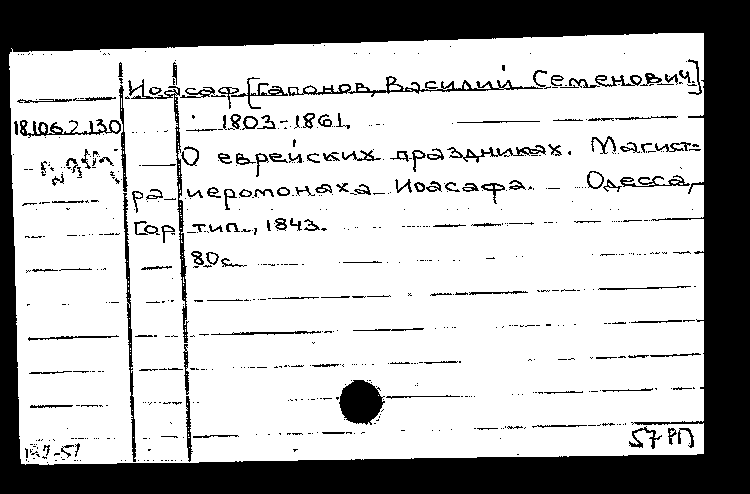 Иоасаф [Гапонов, Василий Семенович].
18.106.2.130
1803-1861.
О еврейских праздниках. Магист-
ра иеромонаха Иоасафа. – Одесса,
Гор тип., 1843.
80с.
57 РП